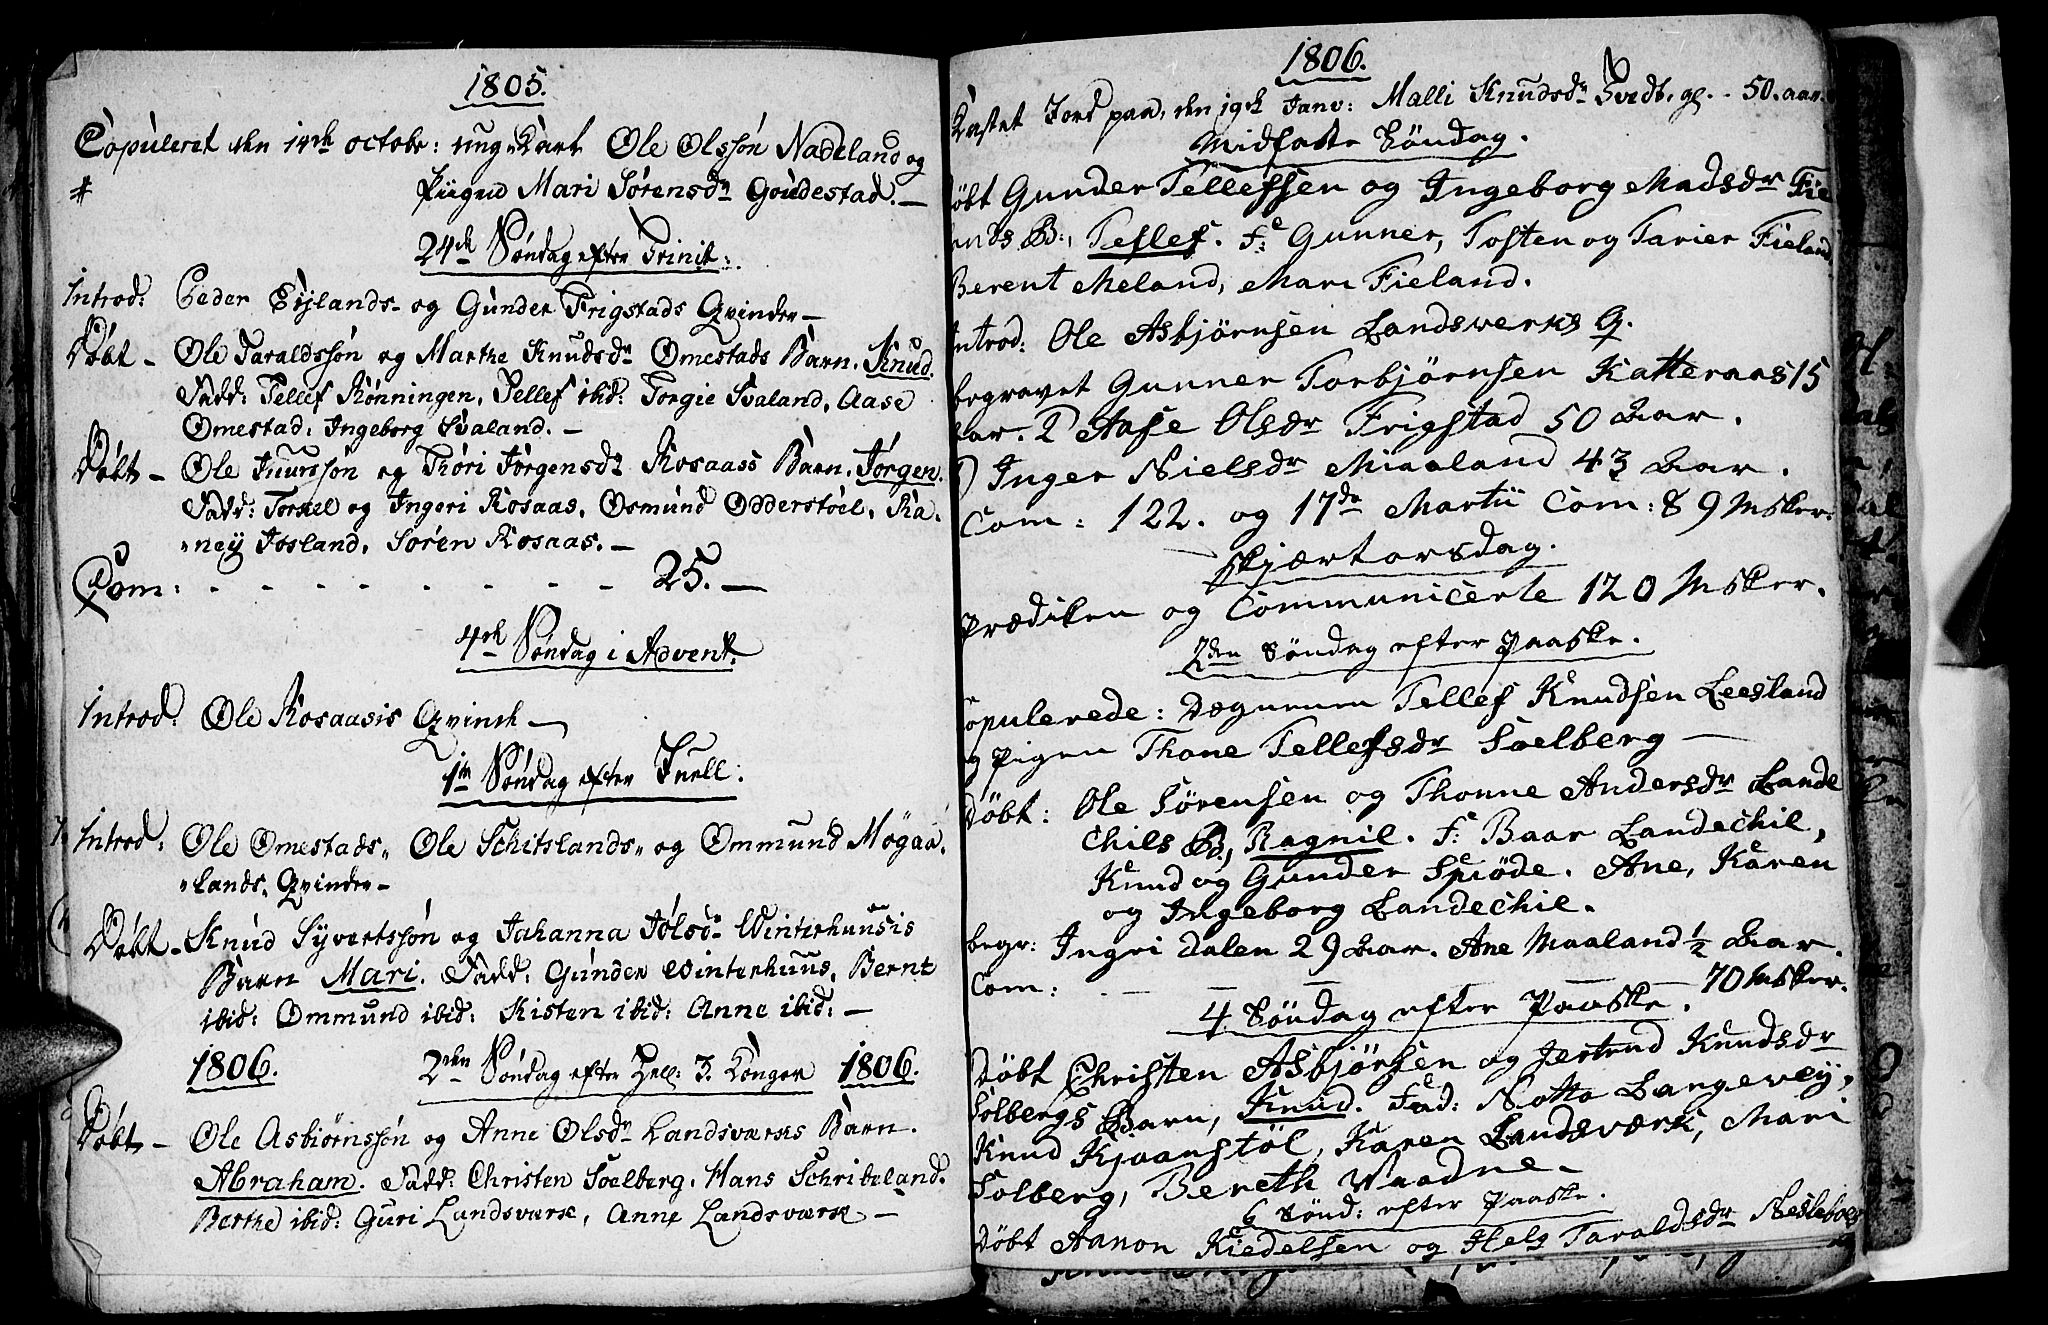 1805.
Copuleret den 14ch octobr: ung Karl Ole Olssøn Nadeland og
Piigen Mari Sørensdr Goudestad. —
24ch Søndag efter Trinit:
Introd: Peder Eijlands- og Gunder Frigstads Qvinder —
Døbt - Ole Taraldssøn og Marthe Knudsdr Omestads Barn. Knud.
Fadd: Tellef Rønningen, Tellef ibid: Torgie Svaland, Aase
Omestad, Ingeborg Svaland. —
Døbt - Ole Knurssøn og Thori Jørgensdr Rosaass Barn. Jørgen.
Fadd: Torkel og Ingeri Rosaas, Osmund Odderstøel, Ra-
ney Josland, Søren Rosaas. —
Com: - - - - - - - - 25. —
4ch Søndag i Advent.
Introd: Ole Rosaasis Qvinde —
1ste Søndag efter Juell:
Introd: Ole Omestads, Ole Schitslands, og Ommund Mogaa-
lands, Qvinder —
Døbt - Knud Syvertssøn og Johanna Jolsdr Winterhuusis
Barn Mari. Fadd: Gunder Winterhuus, Bernt
ibid: Ommund ibid: Kisten ibid: Anne ibid: —
1806. 2den Søndag efter Hell: 3. Konger 1806.
Døbt - Ole Asbiørnssøn og Anne Olsdr Landsværks Barn.
Abraham. Fadd: Christen Soelberg, Hans Schribeland.
Berthe ibid: Guri Landsværk, Anne Landsværk —
1806.
Kastet Jord paa, den 19ch Janv: Malli Knudsdr Tvedt, gl. - 50. aar.
Midfaste Søndag.
Døbt Gunder Tellefsen og Ingeborg Madsdr Fie
lands B:, Tellef. F: Gunner, Tosten og Tarier Fieland
Berent Meland, Mari Fieland.
Introd: Ole Asbjørnsen Landsverks Q.
begravet Gunner Torbjørnsen Katteraas 15
Aar. 2) Aase Olsdr Frigstad 50 Aar.
3) Inger Nielsdr Miaaland 43 Aar.
Com: 122. og 17de Martii Com: 89 Msker.
Skjærtorsdag.
Prædiken og Communicerte 120 Msker.
2den Søndag efter Paaske.
Copulerede: Tellef Knudsen Leesland
og Pigen Thone Tellefsdr Soelberg —
Døbt: Ole Sørensen og Thonne Andersdr Lande
chils B:, Ragnil. F: Baar Landechil,
Knud og Gunder Spiøde. Ane, Karen
og Ingeborg Landechil.
begr: Ingri Dalen 29 Aar. Ane Maaland ½ Aar.
Com: - - - - - 70 Msker.
4 Søndag efter Paaske.
Døbt Christen Asbjørsen og Jertrud Knudsdr
Solbergs Barn, Knud. Fad: Notto Langevey,
Knud Kjaanstøl, Karen Landsværk, Mari
Solberg, Bereth Vaadne.
6 Sønd: efter Paaske.
Døbt Aanon Kiedelsen og Helg Taraldsdr